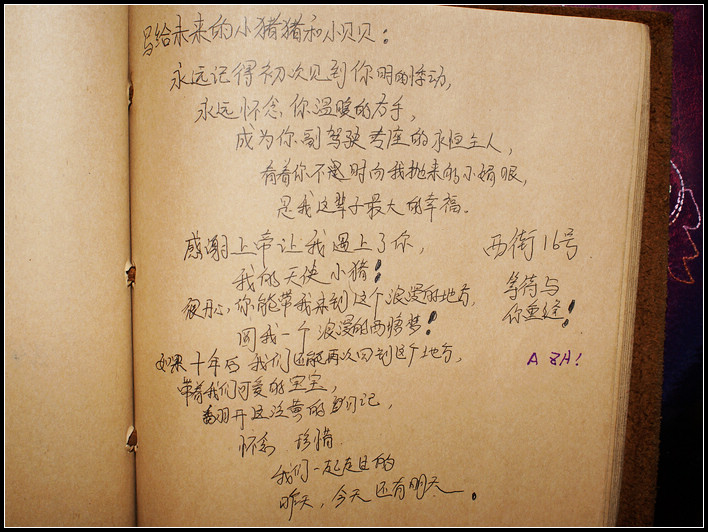 写给未来的小猪猪和小贝贝：
永远记得初次见到你时的悸动，
永远怀念，你温暖的右手，
成为你副驾驶专座的永恒主人，
看着你不时向我抛来的小媚眼，
是我这辈子最大的幸福。
感谢上帝让我遇上了你，
我的天使小猪！
很开心，你能带我来到这个浪漫的地方，
圆我一个浪漫的西街梦！
如果十年后我们还能再次回到这个地方，
带着我们可爱的宝宝，
翻开这泛黄的日记，
怀念 珍惜
我们一起走过的
昨天，今天还有明天。
西街16号
等待与
你重逢！
A ZH！